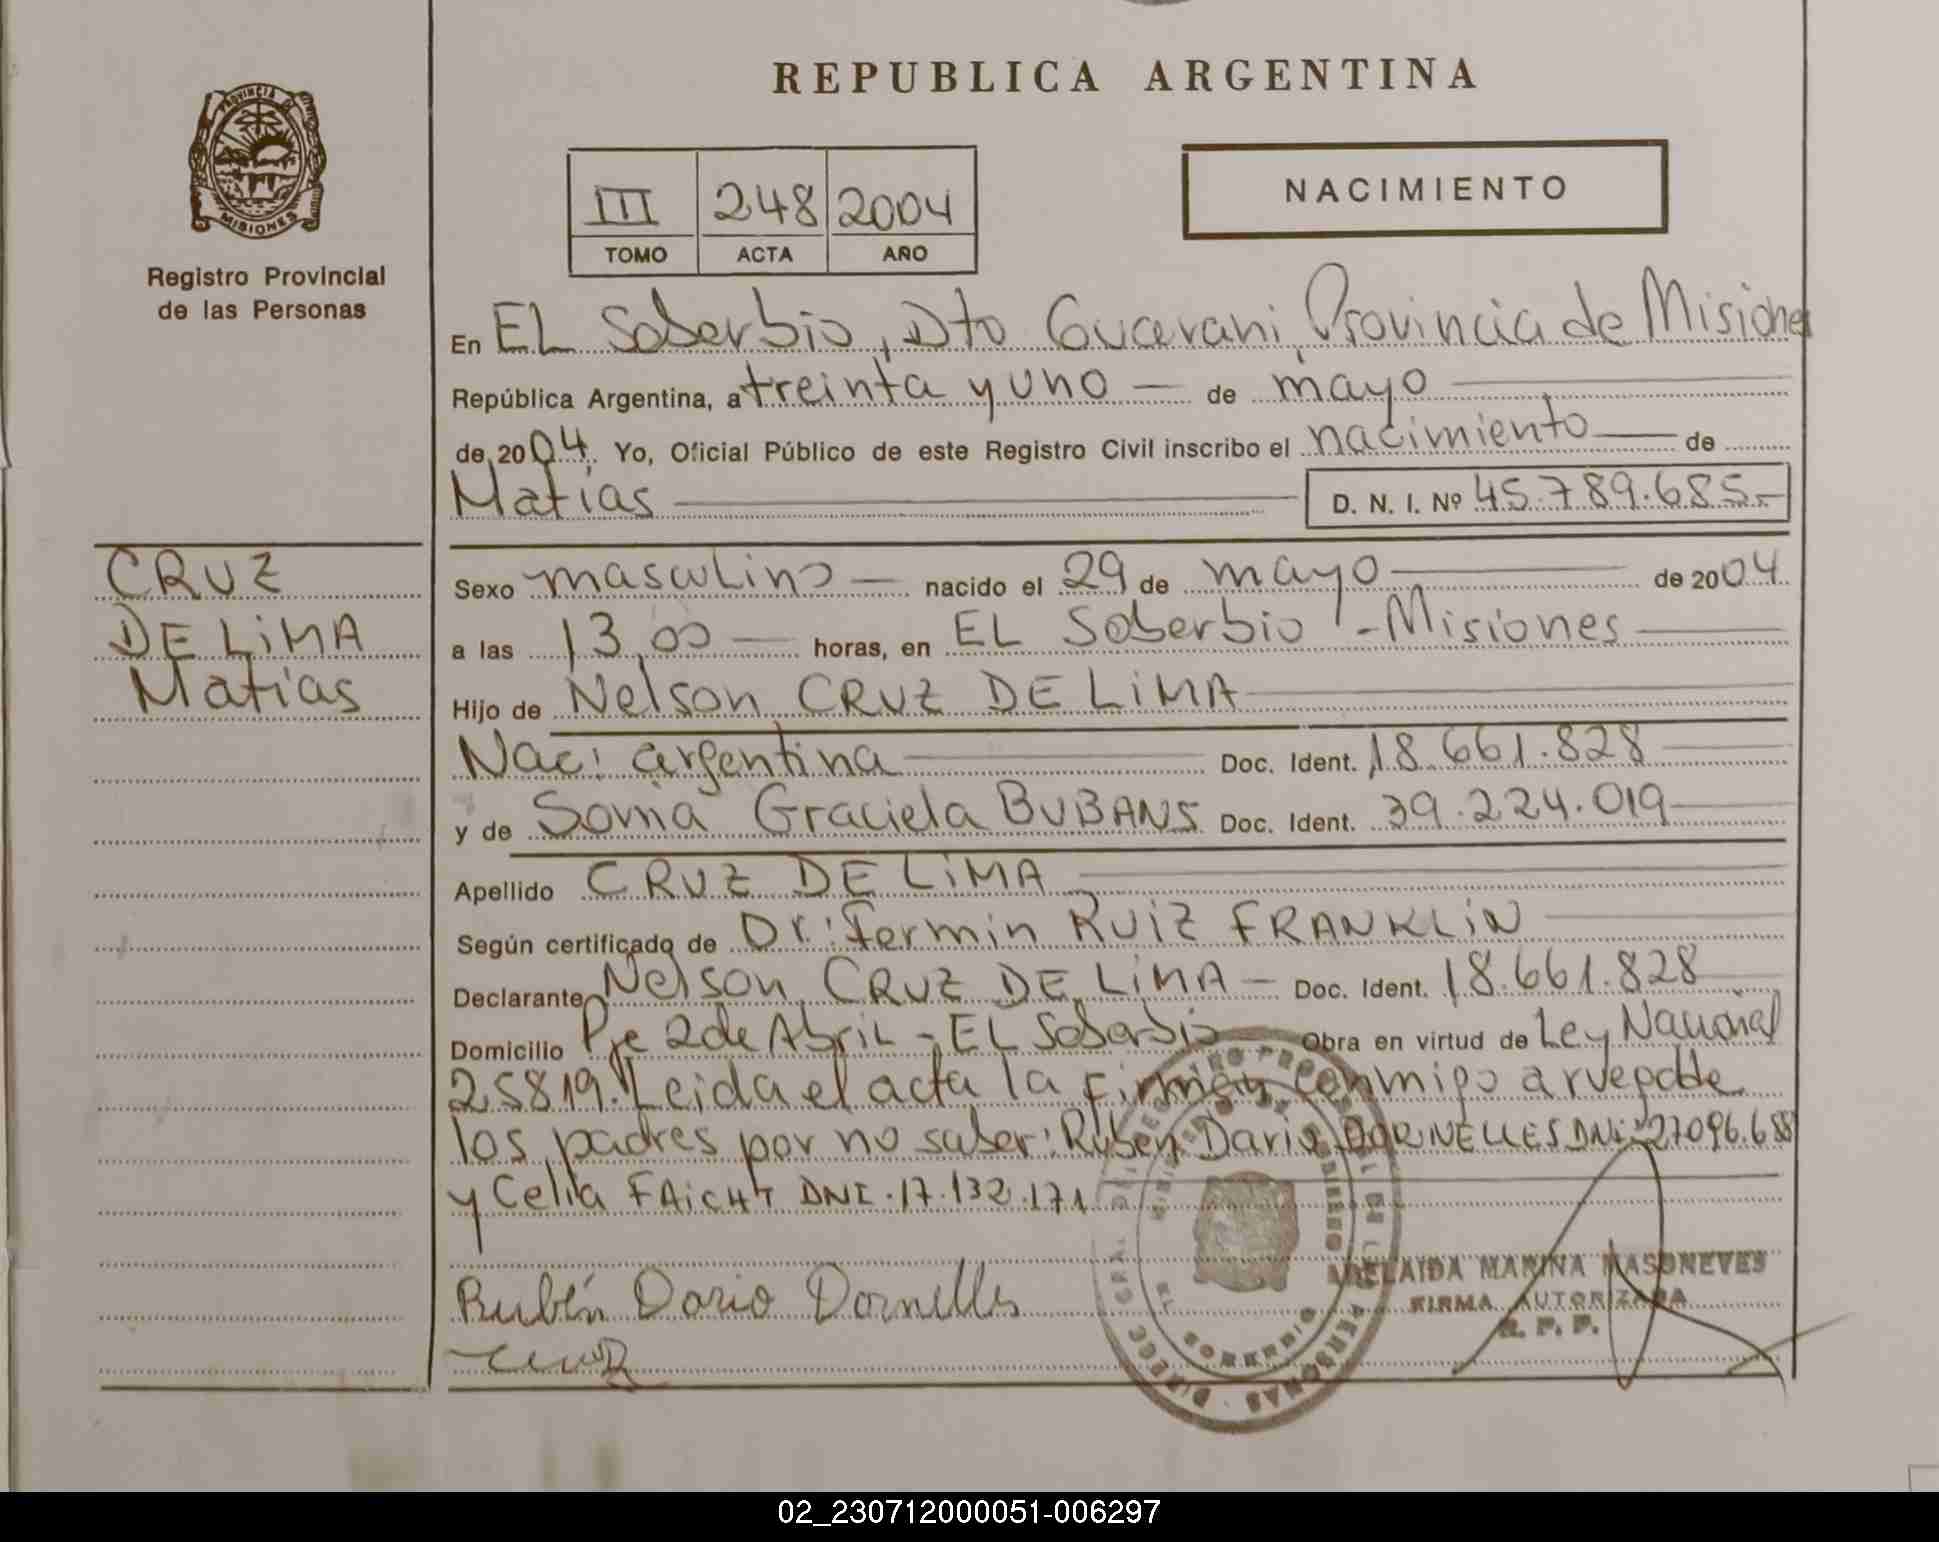 REPUBLICA ARGENTINA
PROVINCIA DE
MISIONES
Registro Provincial
de las Personas
III 248 2004
TOMO ACTA AÑO
NACIMIENTO
En EL Soberbio, Dto Guarani, Provincia de Misiones
República Argentina, a treinta y uno — de mayo
de 2004. Yo, Oficial Público de este Registro Civil inscribo el nacimiento — de
Matias — D. N. I. Nº 45.789.685.-
CRUZ
DE LiMA
Matias
Sexo masculino — nacido el 29 de mayo — de 2004
a las 13,00 — horas, en EL Soberbio - Misiones —
Hijo de Nelson CRUZ DE LiMA —
Nac: argentina — Doc. Ident. 18.661.828 —
y de Sonia Graciela BUBANS Doc. Ident. 39.224.019 —
Apellido CRUZ DE LiMA —
Según certificado de Dr: Fermin RUiZ FRANKLiN —
Declarante Nelson CRUZ DE LiMA — Doc. Ident. 18.661.828
Domicilio Pje 2 de Abril - EL Soberbio Obra en virtud de Ley Nacional
25819. Leida el acta la firman conmigo a ruego de
los padres por no saber: Ruben Dario DORNELLES DNi: 27096.688
y Celia FAiCHT DNI. 17.132.171
Rubén Dario Dornelles
ADELAIDA MARINA MASDNEVES
FIRMA AUTORIZADA
R. P. P.
SOBERBIO
02_230712000051-006297